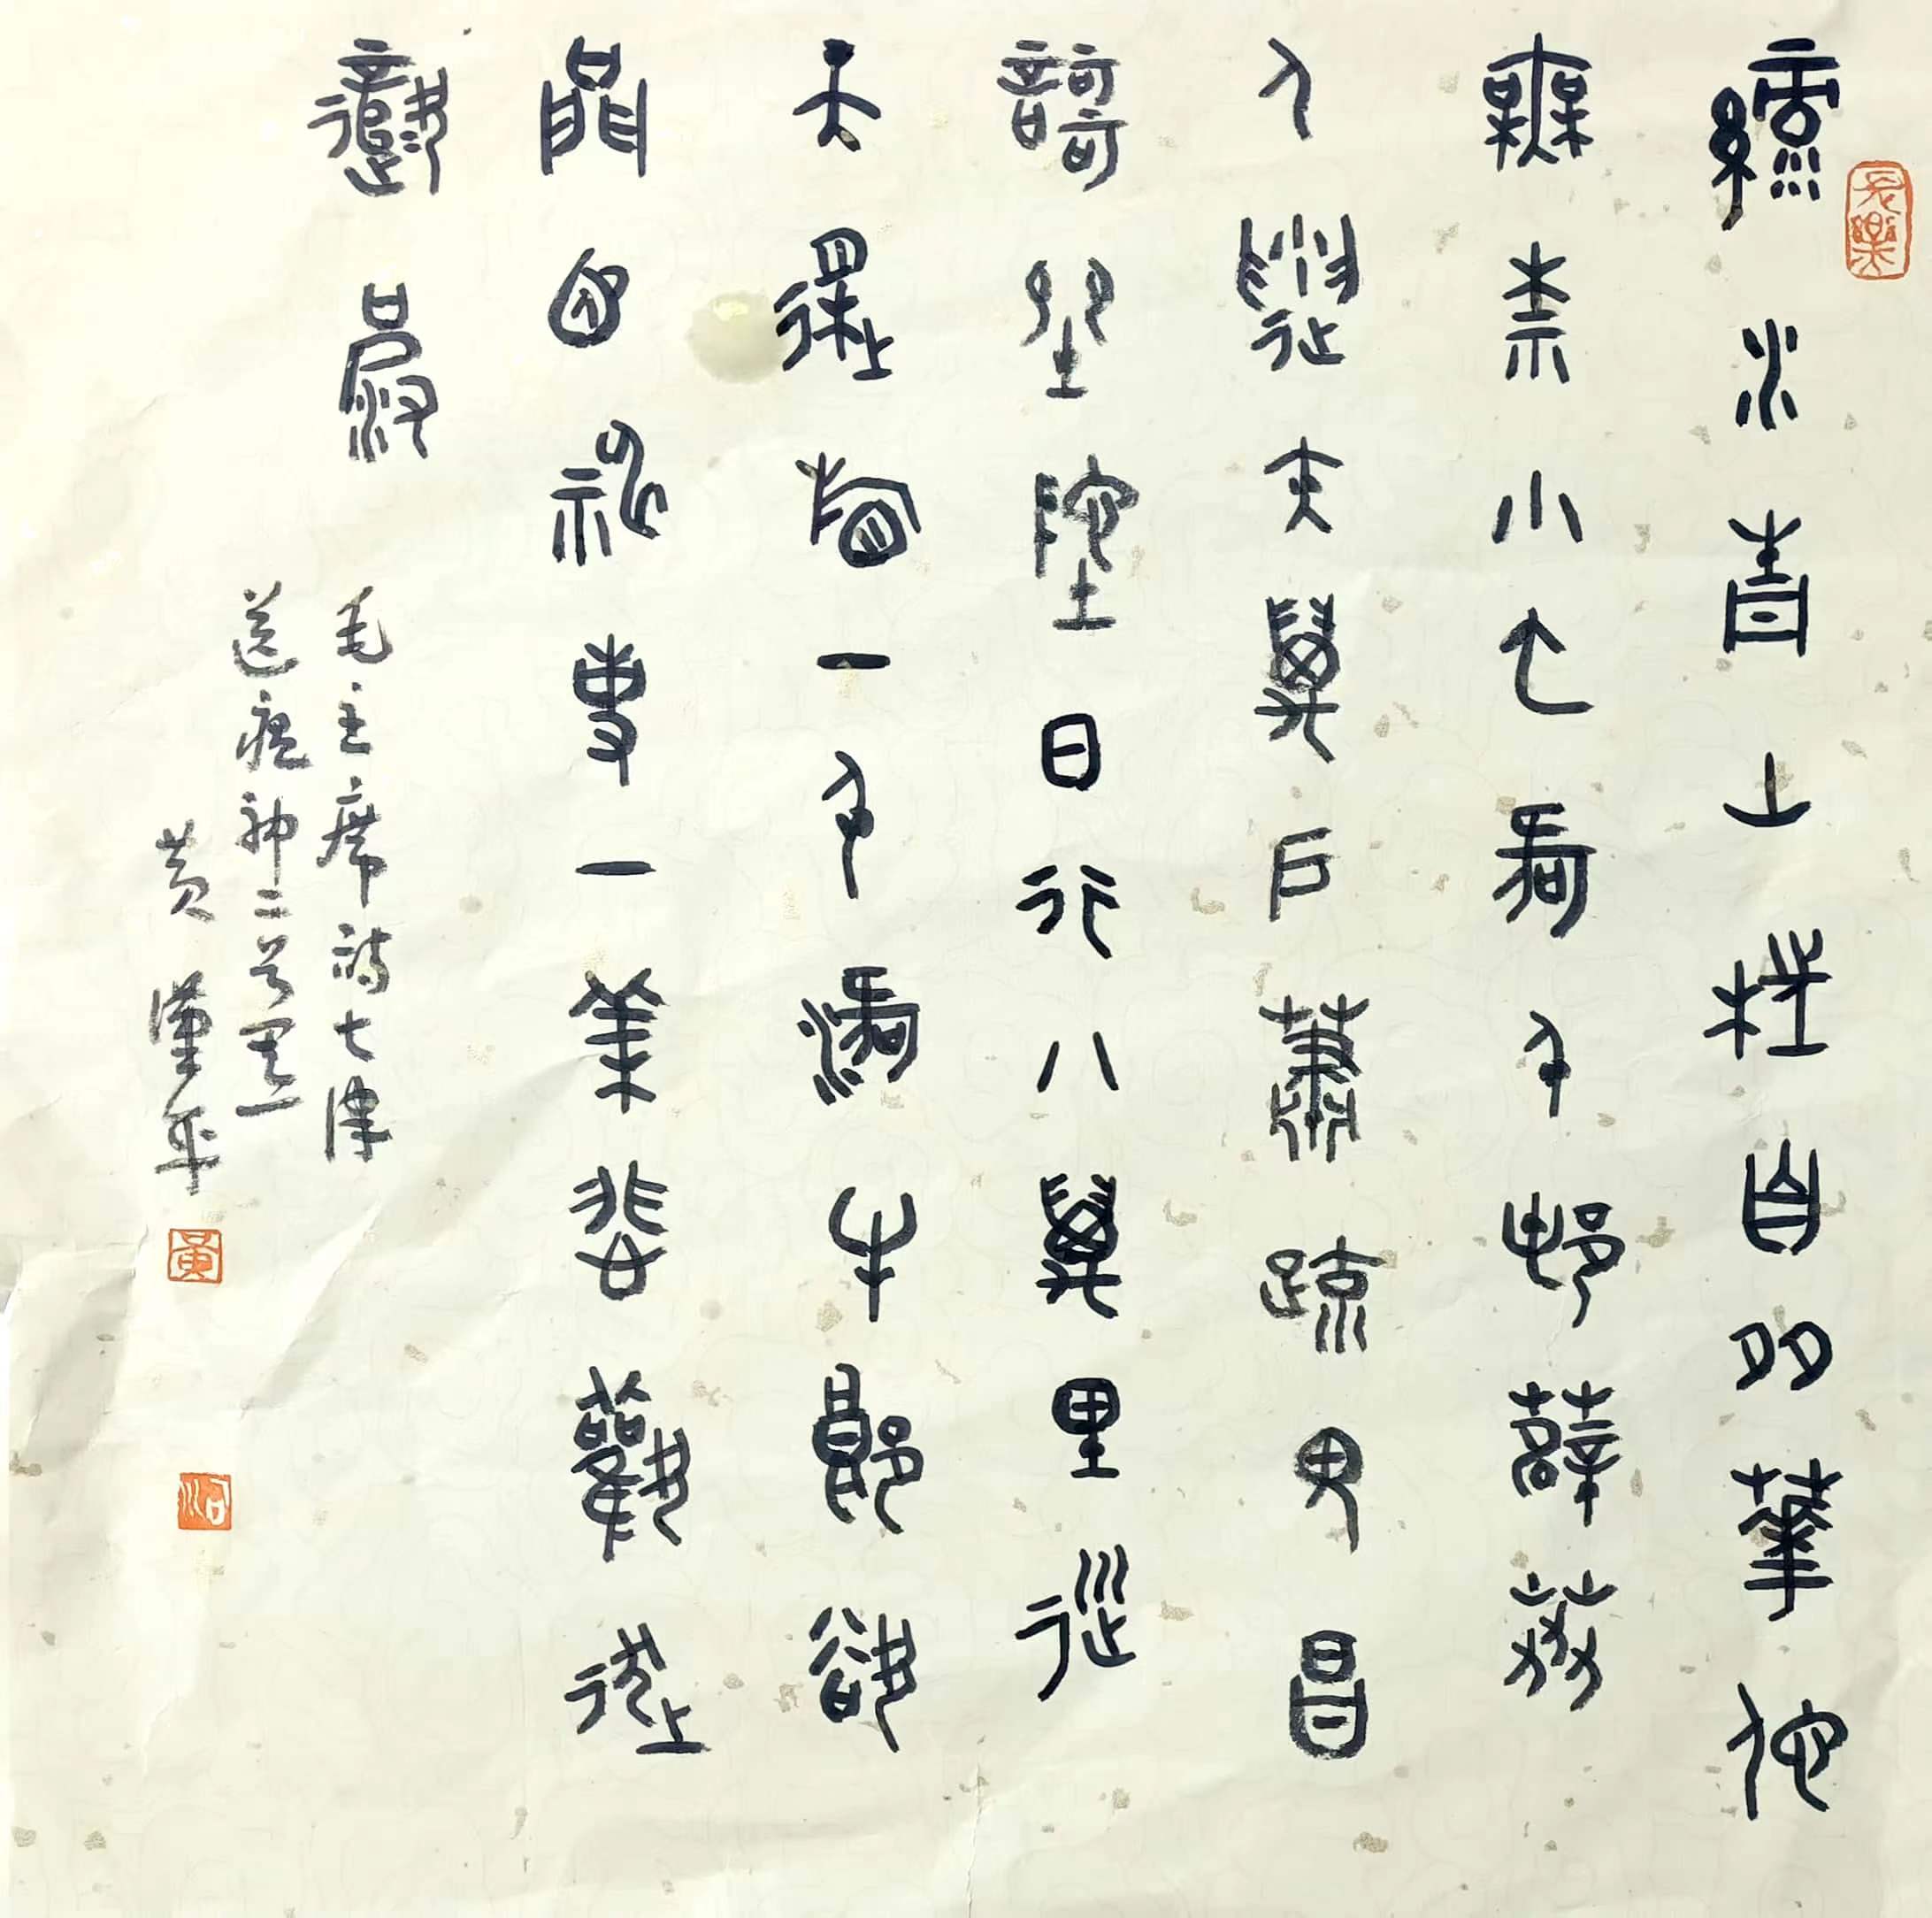 緑水青山枉自多華佗
無奈小虫何千村薜荔
人遺矢萬戶蕭疏鬼唱
歌坐地日行八萬里巡
天遥看一千河牛郎欲
問瘟神事一樣悲歡逐
逝波
毛主席詩七律
送瘟神二首其一
黄漢平
黄